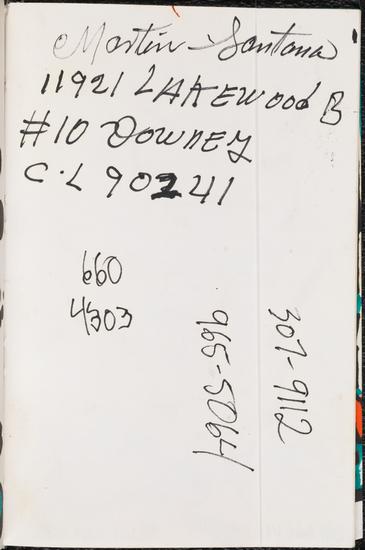 Martin Santana
11921 LAKEWOOD B
#10 DOWNEY
C.L 90241
660
4303
965-5064
307-9112